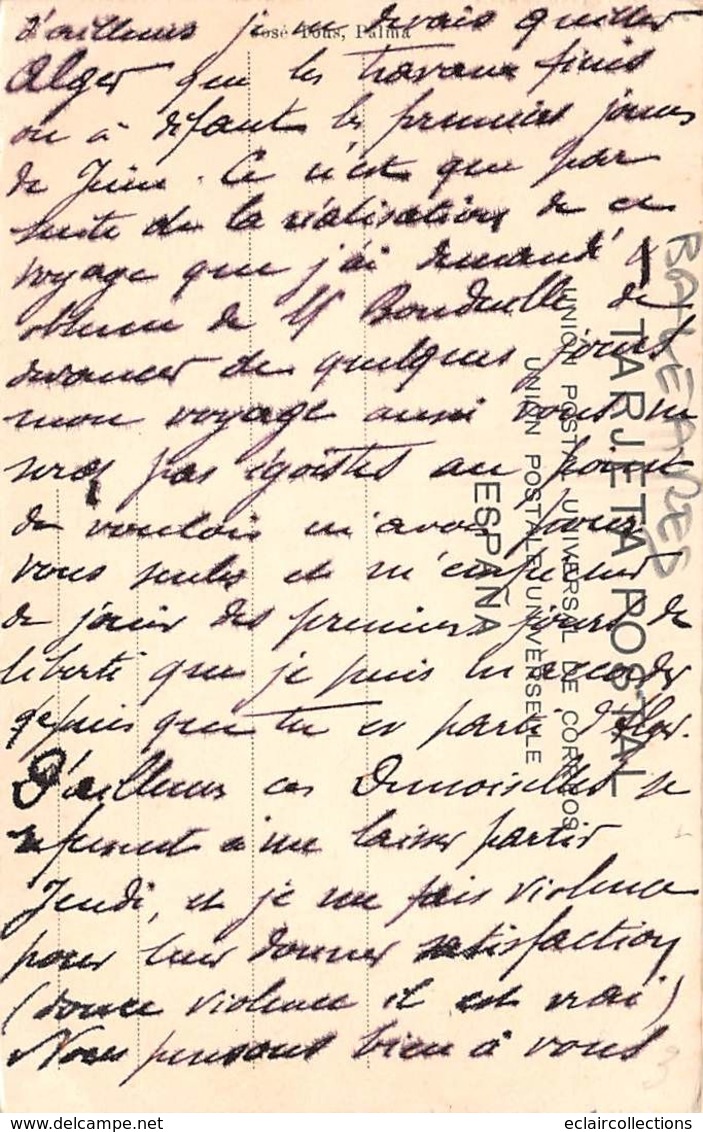 d'ailleurs je ne devais quitter
Alger que les travaux finis
ou à défaut les premiers jours
de Juin. Ce n'est que par
suite de la réalisation de ce
voyage que j'ai demandé &
obtenu de Mr de
devancer de quelques jours
mon voyage aussi vous ne
serez pas égoistes au point
de vouloir m'avoir pour
vous seules et m'empêcher
de jouir des premiers jours de
liberté que je puis m'accorder
depuis que tu es parti d'Alger.
D'ailleurs ces Demoiselles se
refusent à me laisser partir
Jeudi, et je me fais violence
pour leur donner satisfaction
(douce violence il est vrai)
Nous pensons bien à vous
José Tous, Palma
BALEARES
TARJETA POSTAL
UNIÓN POSTAL UNIVERSAL DE CORREOS
UNION POSTALE UNIVERSELLE
ESPAÑA
3
eclaircollections